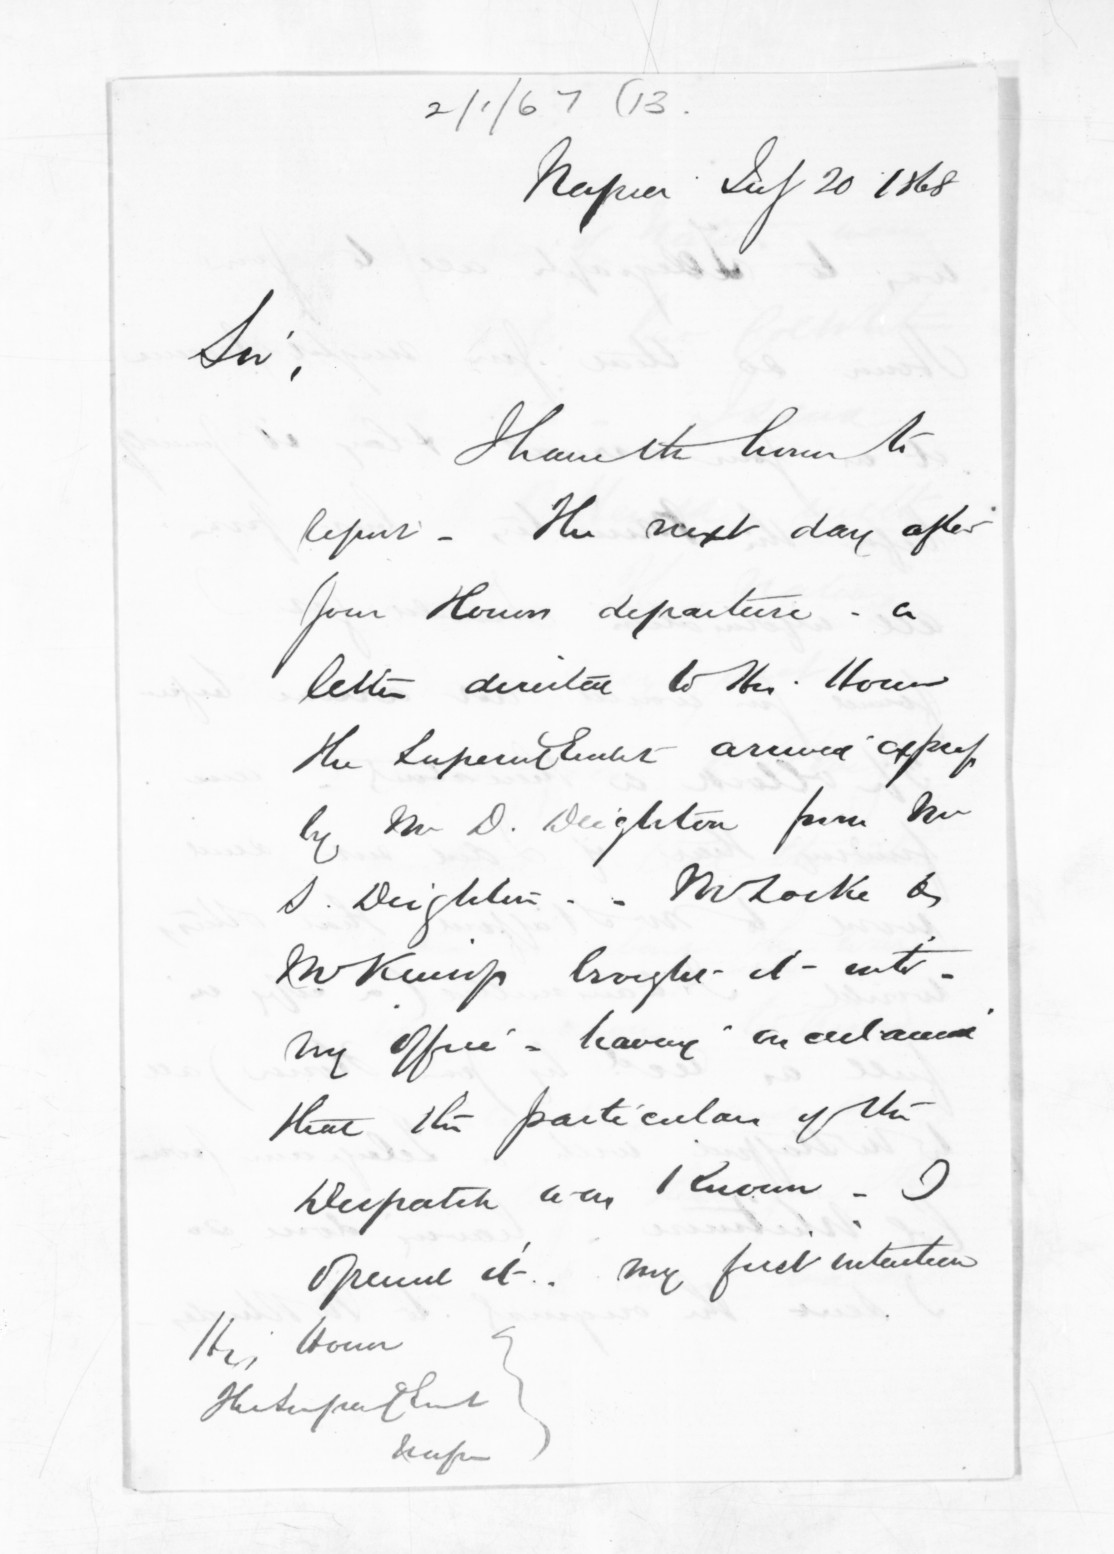 2/1/67 (13.
Napier July 20 1868
Sir,
I have the honor to
report - The next day after
Your Honors departure - a
letter directed to His Honor
the Superintendent arrived express
by Mr D. Deighton from Mr
S. Deighton - - Mr Locke &
Mr Kinross brought it into -
my office - having ascertained
that the particulars of the
Despatch was known - I
opened it - my first intention
His Honor
The Superintendent
Napier